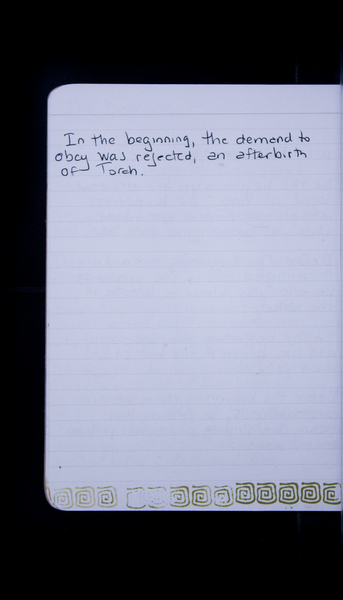 In the beginning, the demand to
obey was rejected, an afterbirth
of Torah.